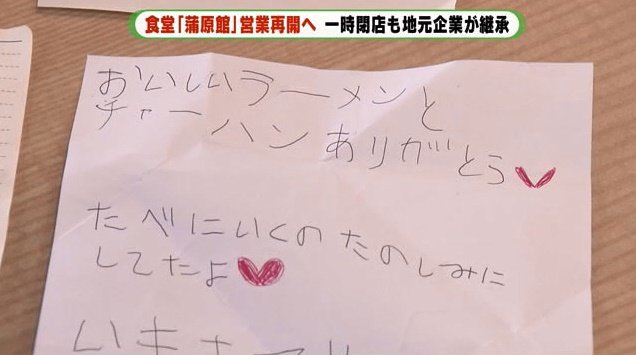 食堂「蒲原館」営業再開へ 一時閉店も地元企業が継承
おいしいラーメンと
チャーハンありがとう♥
たべにいくのたのしみに
してたよ♥